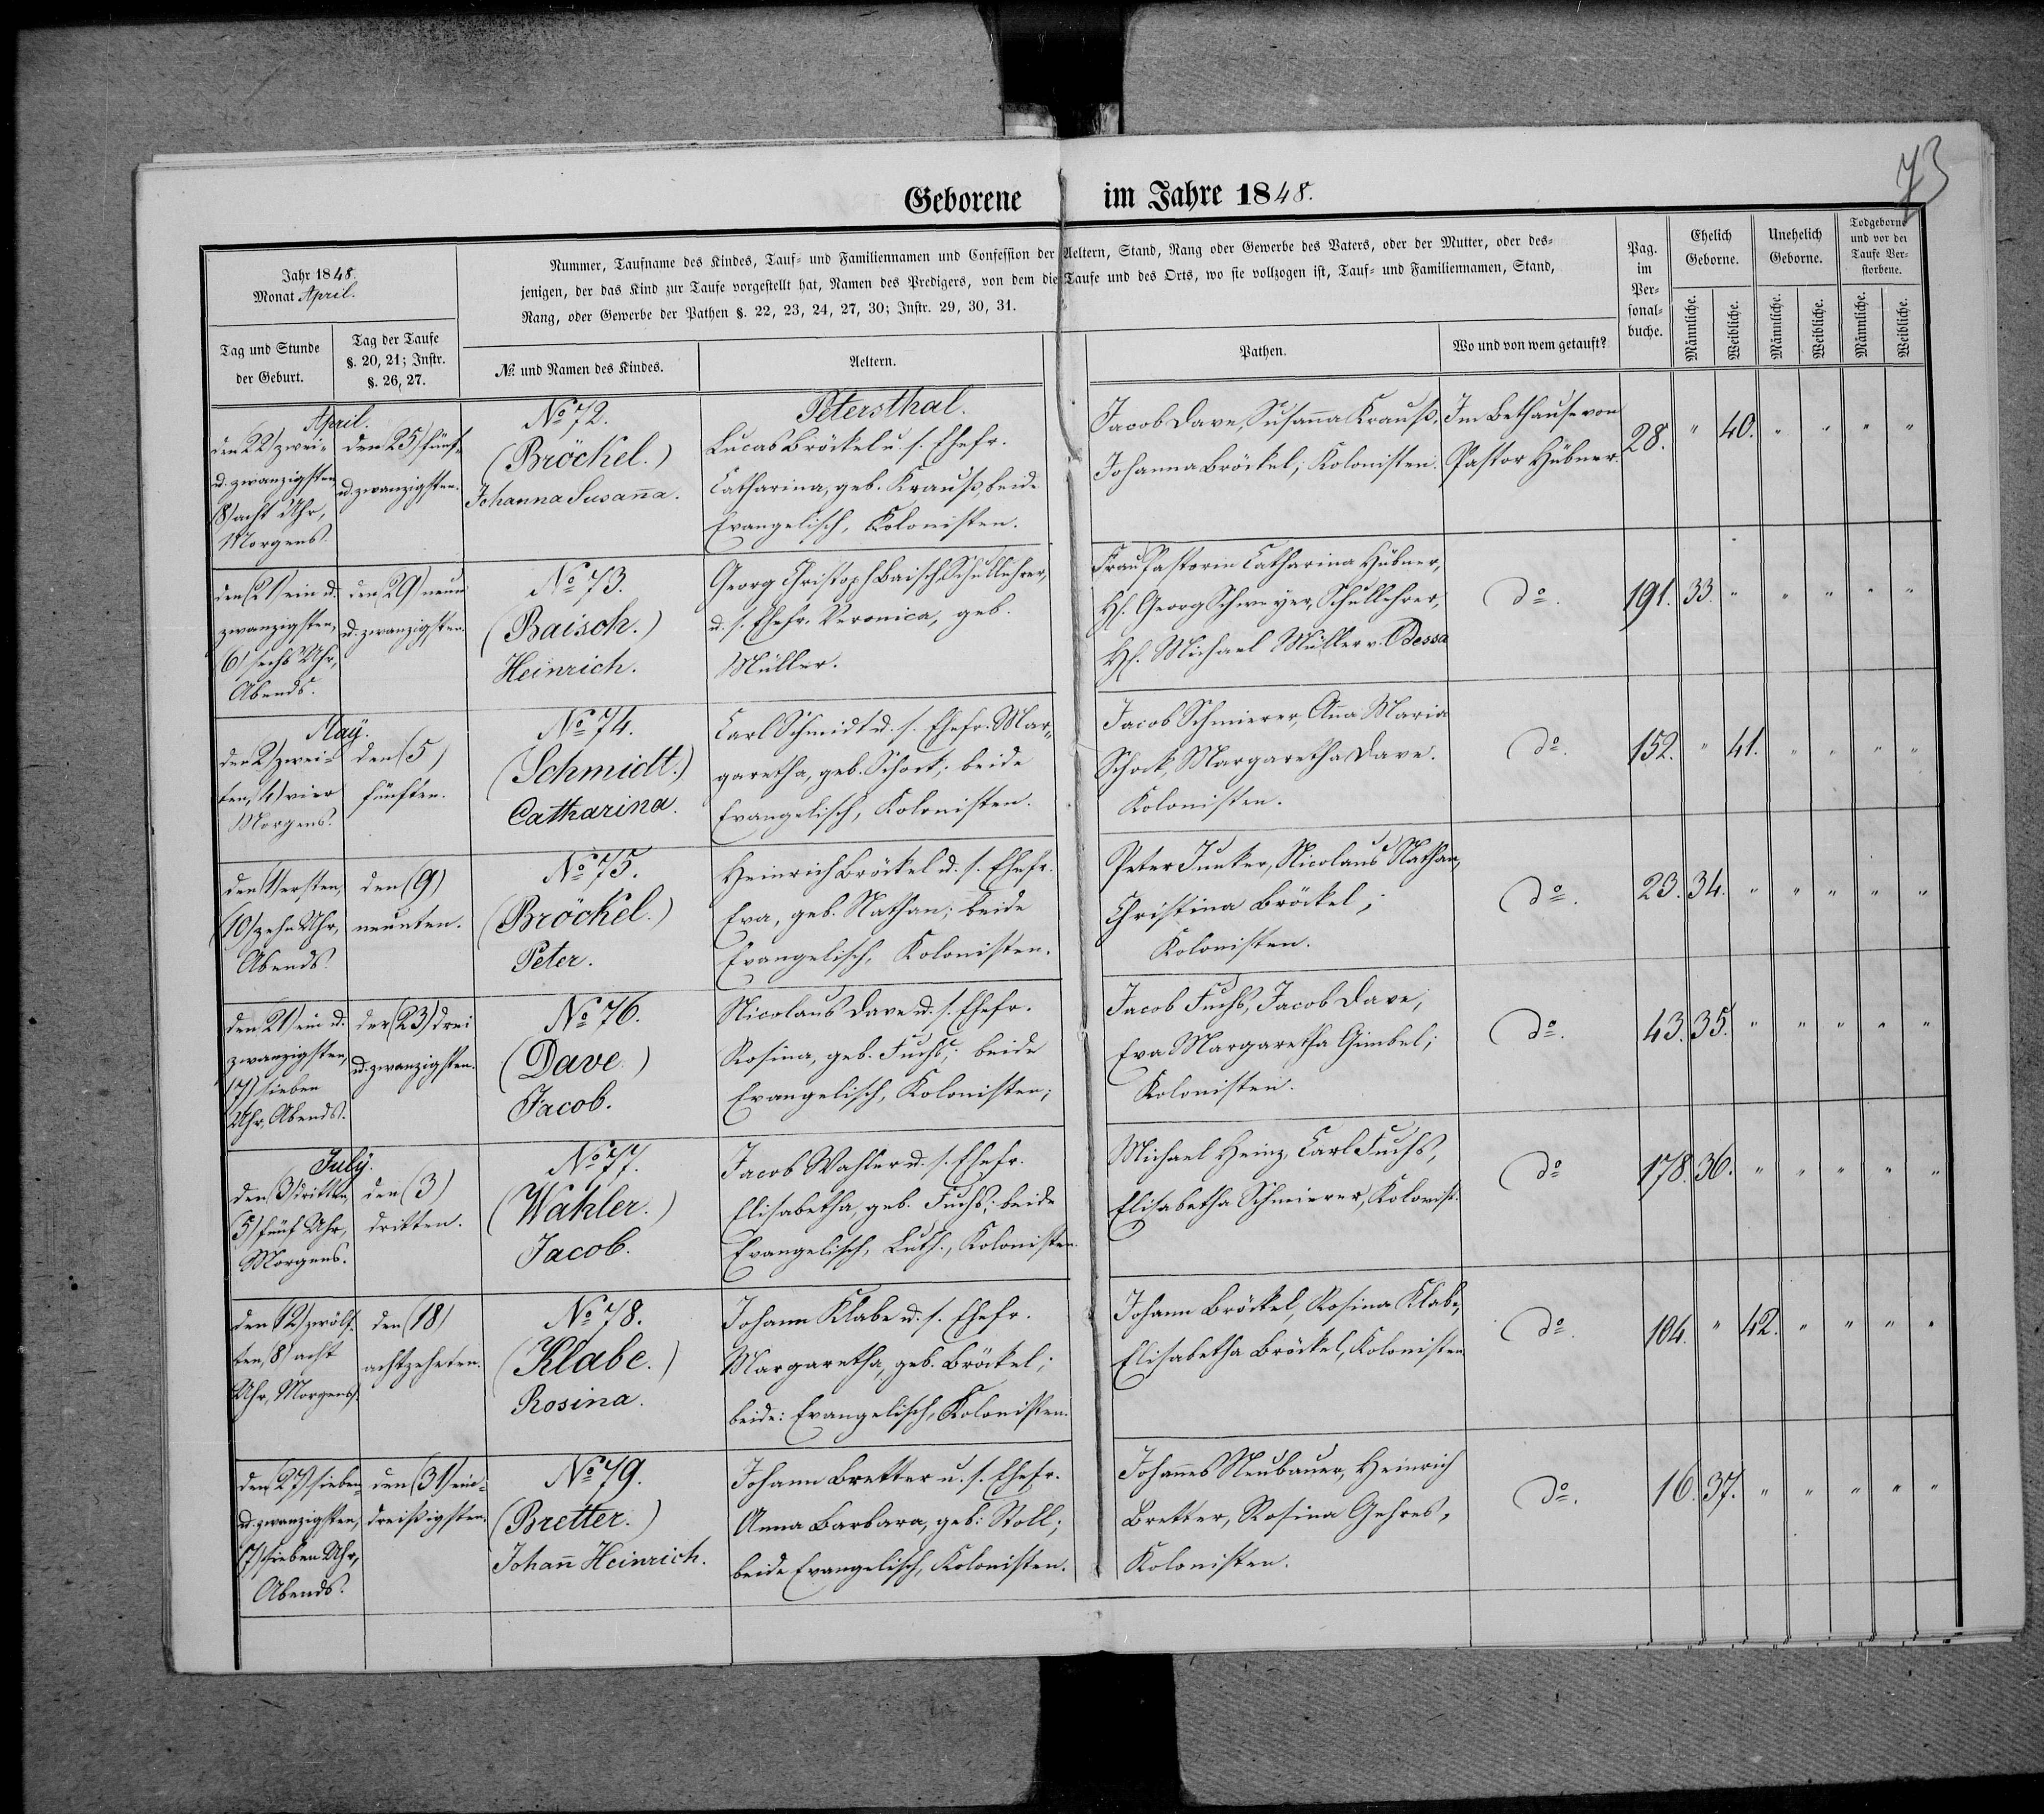 73
Geborene im Jahre 1848.
Jahr 1848.
Monat April.
Tag und Stunde
der Geburt.
Tag der Taufe
§. 20, 21; Instr.
§. 26, 27.
Nummer, Taufname des Kindes, Tauf- und Familiennamen und Confession der Aeltern, Stand, Rang oder Gewerbe des Vaters, oder der Mutter, oder des-
jenigen, der das Kind zur Taufe vorgestellt hat, Namen des Predigers, von dem die Taufe und des Orts, wo sie vollzogen ist, Tauf- und Familiennamen, Stand,
Rang, oder Gewerbe der Pathen §. 22, 23, 24, 27, 30; Instr. 29, 30, 31.
№. und Namen des Kindes.
Aeltern.
Pathen.
Wo und von wem getauft?
Pag.
im
Per-
sonal-
buche.
Ehelich
Geborne.
Unehelich
Geborne.
Todgeborne
und vor der
Taufe Ver-
storbene.
Männliche.
Weibliche.
Männliche.
Weibliche.
Männliche.
Weibliche.
April.
den 22) zwei-
u. zwanzigsten
(8) acht Uhr,
Morgens.
den 25) fünf-
u. zwanzigsten.
No 72.
(Bröckel.)
Johanna Susana.
Petersthal.
Lucas Bröckel u. s. Ehefr.
Catharina, geb. Krauß, beide
Evangelisch, Kolonisten.
Jacob Dave, Susana Krauß,
Johanna Bröckel; Kolonisten.
Im Bethause von
Pastor Hübner.
28. " 40. " " " "
den (21) ein u.
zwanzigsten,
6) sechs Uhr,
Abends.
den (29) neun
u. zwanzigsten.
No 73.
(Baisch.)
Heinrich.
Georg Christoph Baisch Schullehrer,
u. s. Ehefr. Veronica, geb.
Müller.
Frau Pastorin Catharina Hübner,
H. Georg Schweyer, Schullehrer,
H. Michael Müller v. Odessa
do.
191. 33. " " " " "
May.
den 2) zwei-
ten, (4) vier
Morgens.
den (5)
fünften.
No 74.
(Schmidt.)
Catharina.
Carl Schmidt u. s. Ehefr. Mar-
garetha, geb. Schock; beide
Evangelisch, Kolonisten.
Jacob Schmierer, Ana Maria
Schock, Margaretha Dave.
Kolonisten.
do.
152. " 41. " " " "
den (1) ersten,
(10) zehn Uhr,
Abends.
den (9)
neunten.
No 75.
(Bröckel.)
Peter.
Heinrich Bröckel u. s. Ehefr.
Eva, geb. Nathan; beide
Evangelisch, Kolonisten.
Peter Junker, Nicolaus Nathan,
Christina Bröckel;
Kolonisten.
do.
23. 34. " " " " "
den 21) ein u.
zwanzigsten,
(7) sieben
Uhr, Abends.
den (23) drei
u. zwanzigsten.
No 76.
(Dave.)
Jacob.
Nicolaus Dave u. s. Ehefr.
Rosina, geb. Fuchs; beide
Evangelisch, Kolonisten;
Jacob Fuchs, Jacob Dave,
Eva Margaretha Gimbel;
Kolonisten.
do.
43. 35. " " " " "
July.
den (3) dritten,
(5) fünf Uhr,
Morgens.
den (3)
dritten.
No 77.
(Wahler.)
Jacob.
Jacob Wahler u. s. Ehefr.
Elisabetha, geb. Fuchs; beide
Evangelisch, Luth., Kolonisten.
Michael Heinz, Carl Fuchs,
Elisabetha Schmierer, Kolonist.
do
178. 36. " " " " "
den (12) zwölf-
ten, (8) acht
Uhr, Morgens.
den (18)
achtzehnten.
No 78.
(Klabe.)
Rosina.
Johann Klabe u. s. Ehefr.
Margaretha, geb. Bröckel;
beide: Evangelisch, Kolonisten.
Johann Bröckel, Rosina Klabe,
Elisabetha Bröckel, Kolonisten
do.
104. " 42. " " " "
den (27) sieben-
u. zwanzigsten,
(7) sieben Uhr,
Abends.
den (31) ein-
dreißigsten.
No 79.
(Bretter.)
Johan Heinrich.
Johann Bretter u. s. Ehefr.
Anna Barbara, geb: Stoll;
beide Evangelisch, Kolonisten.
Johanes Neubauer, Heinrich
Bretter, Rosina Gehres,
Kolonisten.
do.
16. 37. " " " " "